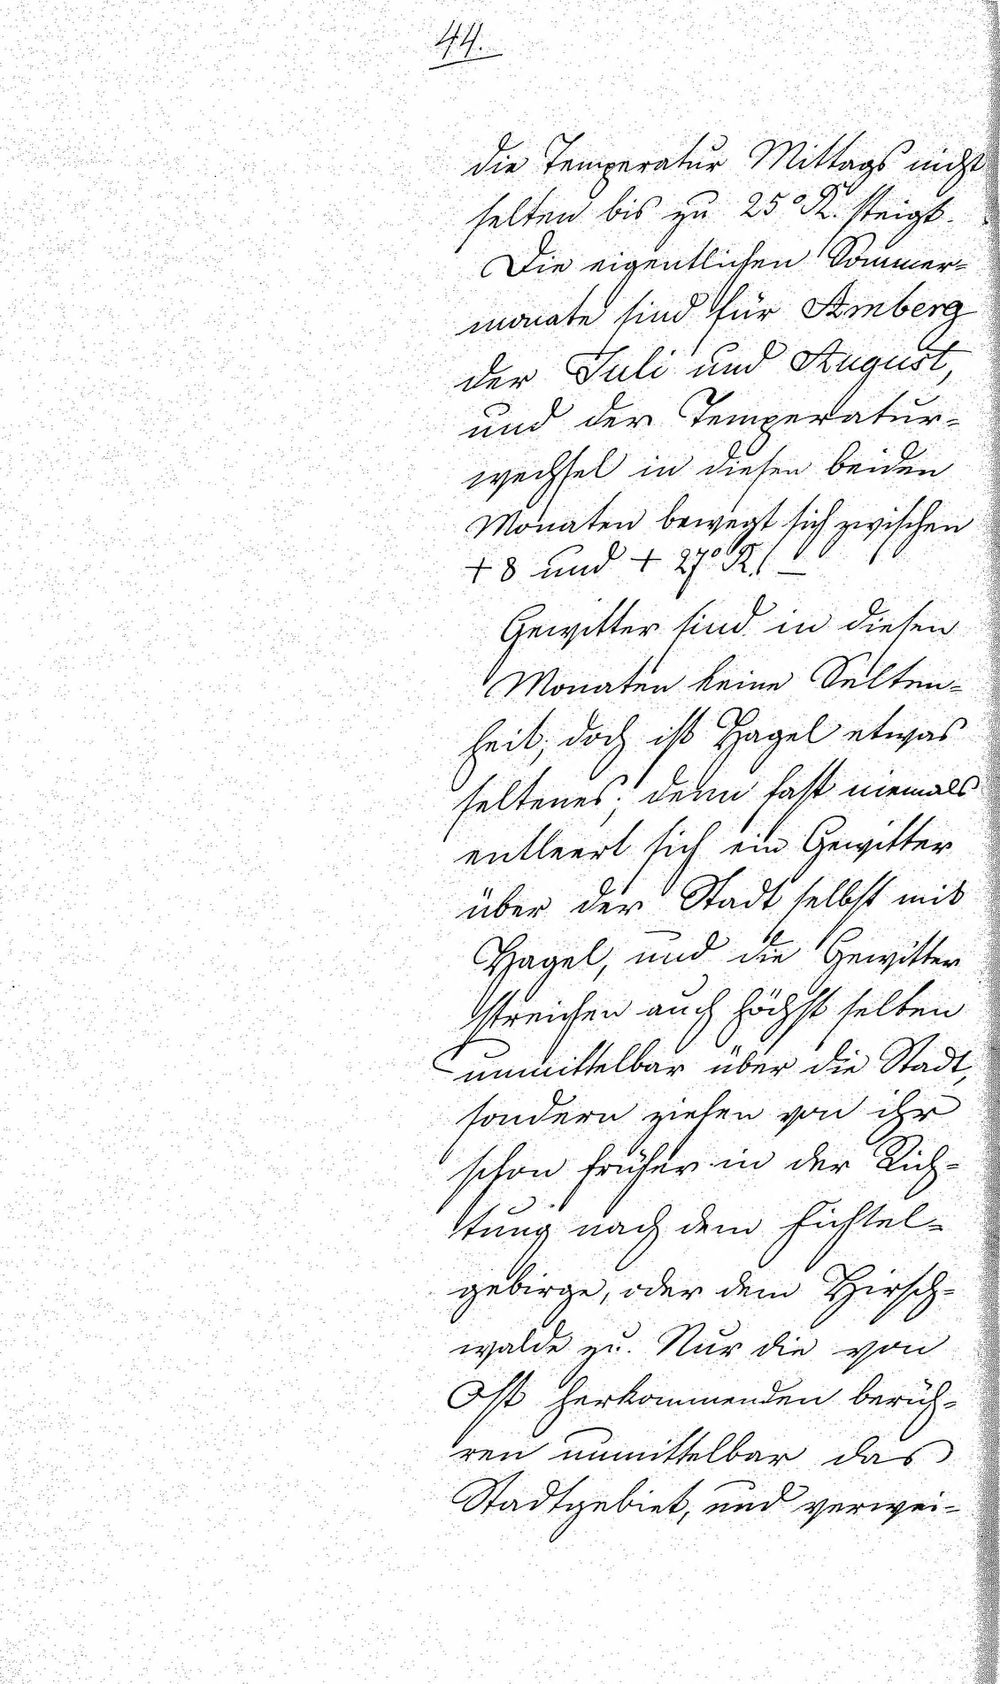 44.
die Temperatur Mittags nicht
selten bis zu 25° R. steigt.
Die eigentlichen Sommer=
monate sind für Amberg
der Juli und August,
und der Temperatur=
wechsel in diesen beiden
Monaten bewegt sich zwischen
+ 8 und + 27° R. –
Gewitter sind in diesen
Monaten keine Selten=
heit; doch ist Hagel etwas
seltenes; denn fast niemals
entleert sich ein Gewitter
über der Stadt selbst mit
Hagel, und die Gewitter
streichen auch höchst selten
unmittelbar über die Stadt,
sondern ziehen von ihr
schon früher in der Rich=
tung nach dem Fichtel=
gebirge, oder dem Hirsch=
walde zu. Nur die von
Ost herkommenden berüh=
ren unmittelbar das
Stadtgebiet, und verwei=